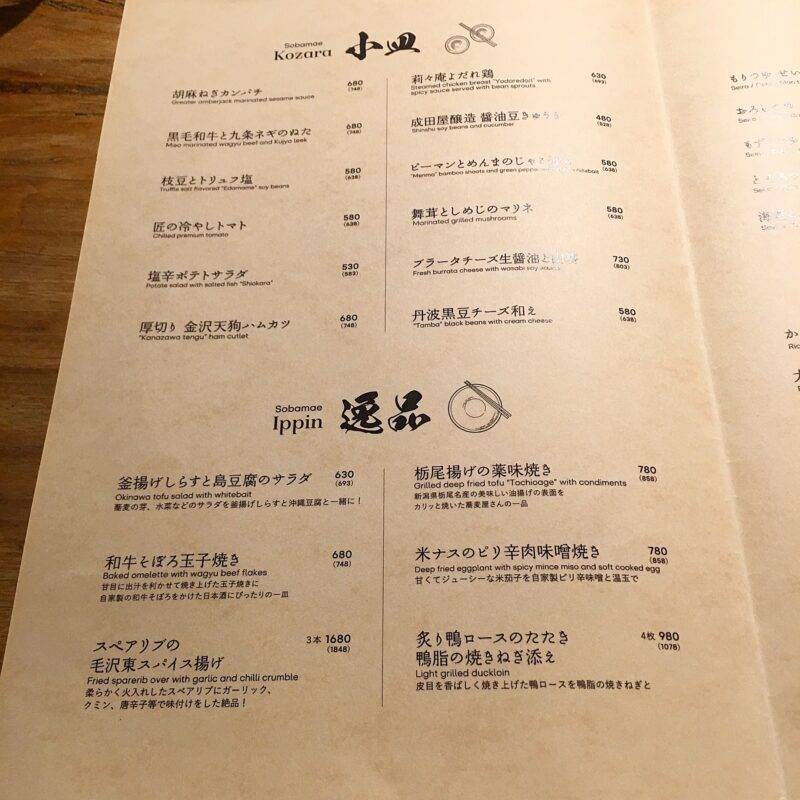 Sobamae
Kozara 小皿
胡麻ねぎカンパチ 680
Greater amberjack marinated sesame sauce (748)
黒毛和牛と九条ネギのぬた 680
Miso marinated wagyu beef and Kujyo leek (748)
枝豆とトリュフ塩 580
Truffle salt flavored "Edamame" soy beans (638)
匠の冷やしトマト 580
Chilled premium tomato (638)
塩辛ポテトサラダ 530
Potato salad with salted fish "Shiokara" (583)
厚切り 金沢天狗ハムカツ 680
"Kanazawa tengu" ham cutlet (748)
莉々庵よだれ鶏 630
Steamed chicken breast "Yodaredori" with (693)
spicy sauce served with bean sprouts
成田屋醸造 醤油豆きゅうり 480
Shinshu soy beans and cucumber (528)
ピーマンとめんまのじゃ 580
"Menma" bamboo shoots and green pepper whitebait (638)
舞茸としめじのマリネ 580
Marinated grilled mushrooms (638)
ブラータチーズ生醤油と 730
Fresh burrata cheese with wasabi soy sauce (803)
丹波黒豆チーズ和え 580
"Tamba" black beans with cream cheese (638)
Sobamae
Ippin 逸品
釜揚げしらすと島豆腐のサラダ 630
Okinawa tofu salad with whitebait (693)
蕎麦の芽、水菜などのサラダを釜揚げしらすと沖縄豆腐と一緒に!
和牛そぼろ玉子焼き 680
Baked omelette with wagyu beef flakes (748)
甘目に出汁を利かせて焼き上げた玉子焼きに
自家製の和牛そぼろをかけた日本酒にぴったりの一皿
スペアリブの 3本 1680
毛沢東スパイス揚げ (1848)
Fried sparerib over with garlic and chilli crumble
柔らかく火入れしたスペアリブにガーリック、
クミン、唐辛子等で味付けをした絶品!
栃尾揚げの薬味焼き 780
Grilled deep fried tofu "Tochioage" with condiments (858)
新潟県栃尾名産の美味しい油揚げの表面を
カリッと焼いた蕎麦屋さんの一品
米ナスのピリ辛肉味噌焼き 780
(858)
Deep fried eggplant with spicy mince miso and soft cooked egg
甘くてジューシーな米茄子を自家製ピリ辛味噌と温玉で
炙り鴨ロースのたたき 4枚 980
鴨脂の焼きねぎ添え (1078)
Light grilled duckloin
皮目を香ばしく焼き上げた鴨ロースを鴨脂の焼きねぎと